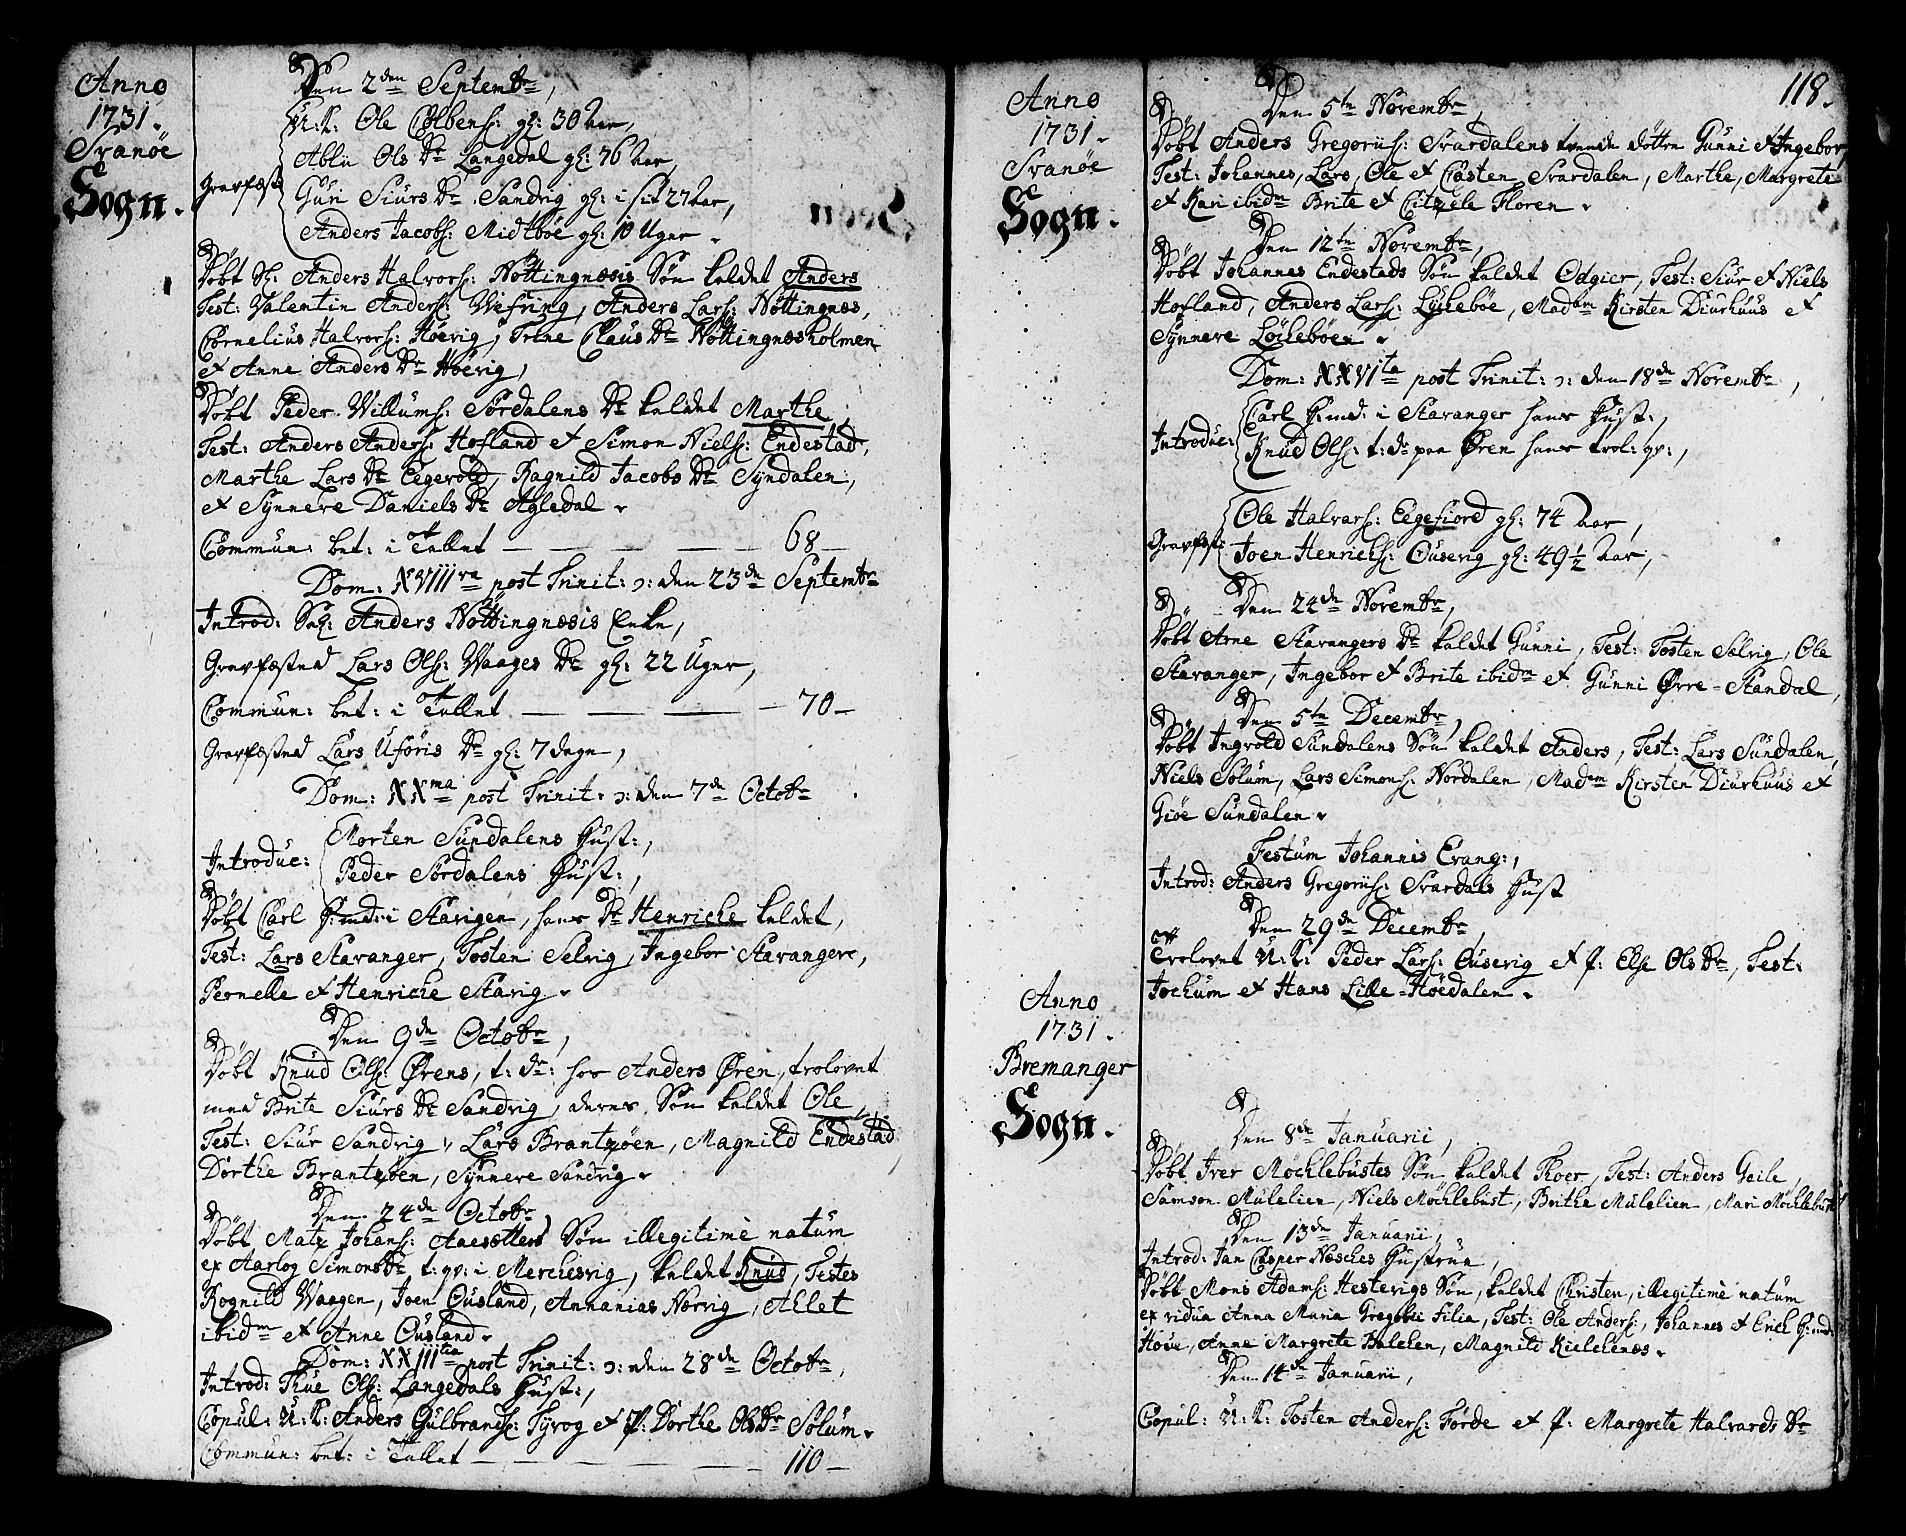 Anno
1731.
Svanöe
Sogn.
Den 2den Septembr,
U:K: Ole Colbens: gl: 30 Aar,
Ablu Ols Dr Langedal gl: 76 Aar,
Gravfæst
Guri Siurs Dr Sandvig gl: i sit 27 Aar,
Anders Jacobs: Midtböe gl: 10 Uger.
Döbt Sl: Anders Halvors: Nöttingnæsis Sön kaldet Anders
Test: Valentin Anders: Wefring, Anders Lars: Nöttingnæs,
Cornelius Halvors: Höevig, Trine Claus Dr Nöttingnæsholmen
et Anne Anders Dr Höevig,
Döbt Peder Willums: Sördalens Dr kaldet Marthe,
Test: Anders Anders: Hofland et Simon Niels: Endestad,
Marthe Lars Dr Eegevold, Ragnild Jacobs Dr Syndalen,
et Synneve Daniels Dr Agledal.
Commun: bet: i Tallet — — — — — 68 —
Dom: XVIIIva post Trinit: ɔ: den 23de Septembr
Introd: Sal: Anders Nöttingnæsis Enke,
Gravfæsted Lars Ols: Waages Dr gl: 22 Uger,
Commun: bet: i Tallet — — — — 70 —
Gravfæsted Lars Uföris Dr gl: 7 dage,
Dom: XXma post Trinit: ɔ: den 7de Octobr
Introduc:
Morten Sundalens Hust:,
Peder Sördalens Hust:,
Döbt Carl Gmd: i Stavigen, hans Dr Henriche kaldet,
Test: Lars Stavanger, Tosten Selvig, Ingebor Stavangere,
Pernelle et Henriche Stavig.
Den 9de Octobr,
Döbt Knud Ols: Örens, t: dr: hos Anders Ören, trolovet
med Brite Siurs Dr Sandvig, deres Sön kaldet Ole,
Test: Siur Sandvig, Lars Brantzöen, Magnild Endestad
Dorthe Brantzöen, Synneve Sandvig.
Den 24de Octobr,
Döbt Matz Johans: Aaesætters Sön illegitimè natum
ex Aarlog Simonsdr t: qv: i Merchesvig, kaldet Knud, Testes
Rognild Waagen, Joen Ousland, Annanias Norvig, Ahlet
ibidm et Anne Ousland.
Dom: XXIIItia post Trinit: ɔ: den 28de Octobr,
Introd: Thue Ols: Langedals Hust:,
Copul: U:K: Anders Gulbrands: Tyvog et P: Dorthe Ols Dr Solum.
Commun: bet: i Tallet — — — — — 110 —
Anno
1731.
Svanöe
Sogn.
118.
Den 5te Novembr,
Döbt Anders Gregorius: Svardalens tvende Dötter Gunni et Ingebor,
Test: Johannes, Lars, Ole et Casten Svardalen, Marthe, Margrete
et Kari ibidm Brite et Citzele Floren.
Den 12te Novembr,
Döbt Johannes Endestads Sön kaldet Odgier, Test: Siur et Niels
Hofland, Anders Lars: Lycheböe, Madam Kirsten Diurhuus et
Synneve Löcheböen.
Dom: XXVIta post Trinit: ɔ: den 18de Novembr,
Introduc:
Carl Gmd: i Stavanger hans Hust:,
Knud Ols: t: dr paa Ören hans trol: qv:,
Gravfæst:
Ole Halvars: Eegefiord gl: 74 Aar,
Joen Henrichs: Ousevig gl: 49 1/2 Aar,
Den 24de Novembr,
Döbt Arne Stavangers Dr kaldet Gunni, Test: Tosten Selvig, Ole
Stavanger, Ingebor et Brite ibidm et Gunni Örre-Standal,
Den 5te Decembr,
Döbt Ingvold Sundalens Sön kaldet Anders, Test: Lars Sundalen,
Niels Solum, Lars Simons: Nordalen, Madm Kirsten Diurhuus et
Giöe Sundalen.
Festum Johannis Evang:,
Introd: Anders Gregorius: Svardals Hust
Den 29de Decembr,
Trolovet U:K: Peder Lars: Ousevig et P: Else Ols Dr, Test:
Jochum et Hans Lille-Höedalen.
Anno
1731.
Bremanger
Sogn.
Den 8de Januarii,
Döbt Iver Möchlebustes Sön kaldet Thoer, Test: Anders Geile,
Samson Mulelien, Niels Möchlebust, Brithe Mulelien, Mari Möchlebust
Den 13de Januarii,
Introd: Jan Casper Næsches Hustrue,
Döbt Mons Adams: Hestevigs Sön, kaldet Christen, illegitimè natum
ex vidua Anna Maria Gregorii Filia, Test: Ole Anders:, Johannes et Erich Gmd:
Houe, Anne Margrete Balchen, Magnild Kielchenæs.
Den 14de Januarii,
Copul: U:K: Tosten Anders: Förde et P: Margrete Halvards Dr